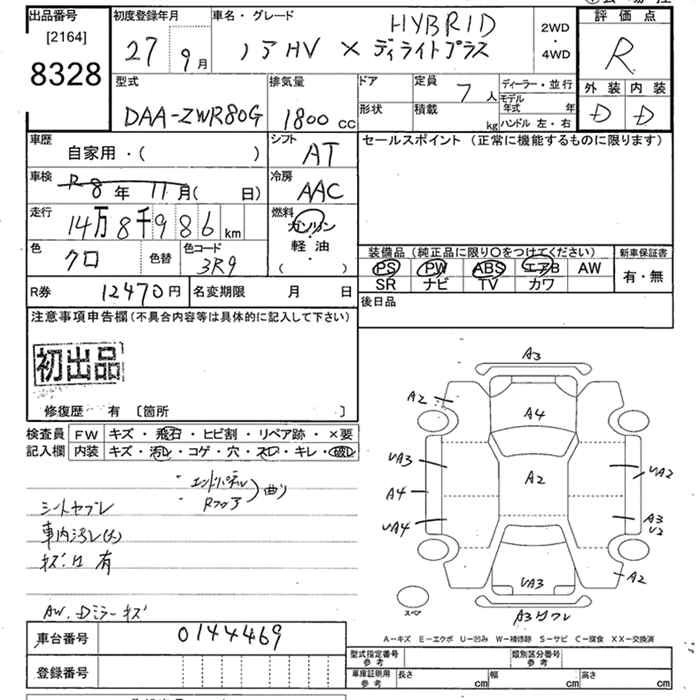 出品番号
[2164]
8328
初度登録年月
27 9月
車名・グレード
HYBRID
ノアHV × ディライトプラス
2WD
・
4WD
評価点
R
外装 内装
D D
型式
DAA-ZWR80G
排気量
1800cc
ドア
定員
7人
形状
積載
kg
ディーラー・並行
モデル年式 年
ハンドル 左・右
車歴
自家用・( )
シフト
AT
セールスポイント (正常に機能するものに限ります)
車検
R8年 11月( 日)
冷房
AAC
走行
14万8千986km
燃料
ガソリン
・
軽油
( )
色
クロ
色替
色コード
3R9
装備品 (純正品に限り○をつけてください)
PS PW ABS エアB AW
SR ナビ TV カワ
新車保証書
有・無
R券 12470円
名変期限 月 日
後日品
注意事項申告欄(不具合内容等は具体的に記入して下さい)
初出品
修復歴 有 〔箇所 〕
検査員記入欄
FW キズ・飛石・ヒビ割・リペア跡・×要
内装 キズ・汚レ・コゲ・穴・スレ・キレ・破レ
・エンドパネル
・Rフロア
曲り
シートヤブレ
車内汚レ(大)
キズ凹有
AW. Dミラーキズ
A3
A2
A4
UA3
A4
A2
UA2
UA4
A3
U2
A2
UA3
スペア
A3ワレ
A-キズ E-エクボ U-凹み W-補修跡 S-サビ C-腐食 XX-交換済
車台番号
0144469
登録番号
型式指定番号
参考
類別区分番号
参考
車庫証明用
参考
長さ cm
幅 cm
高さ cm